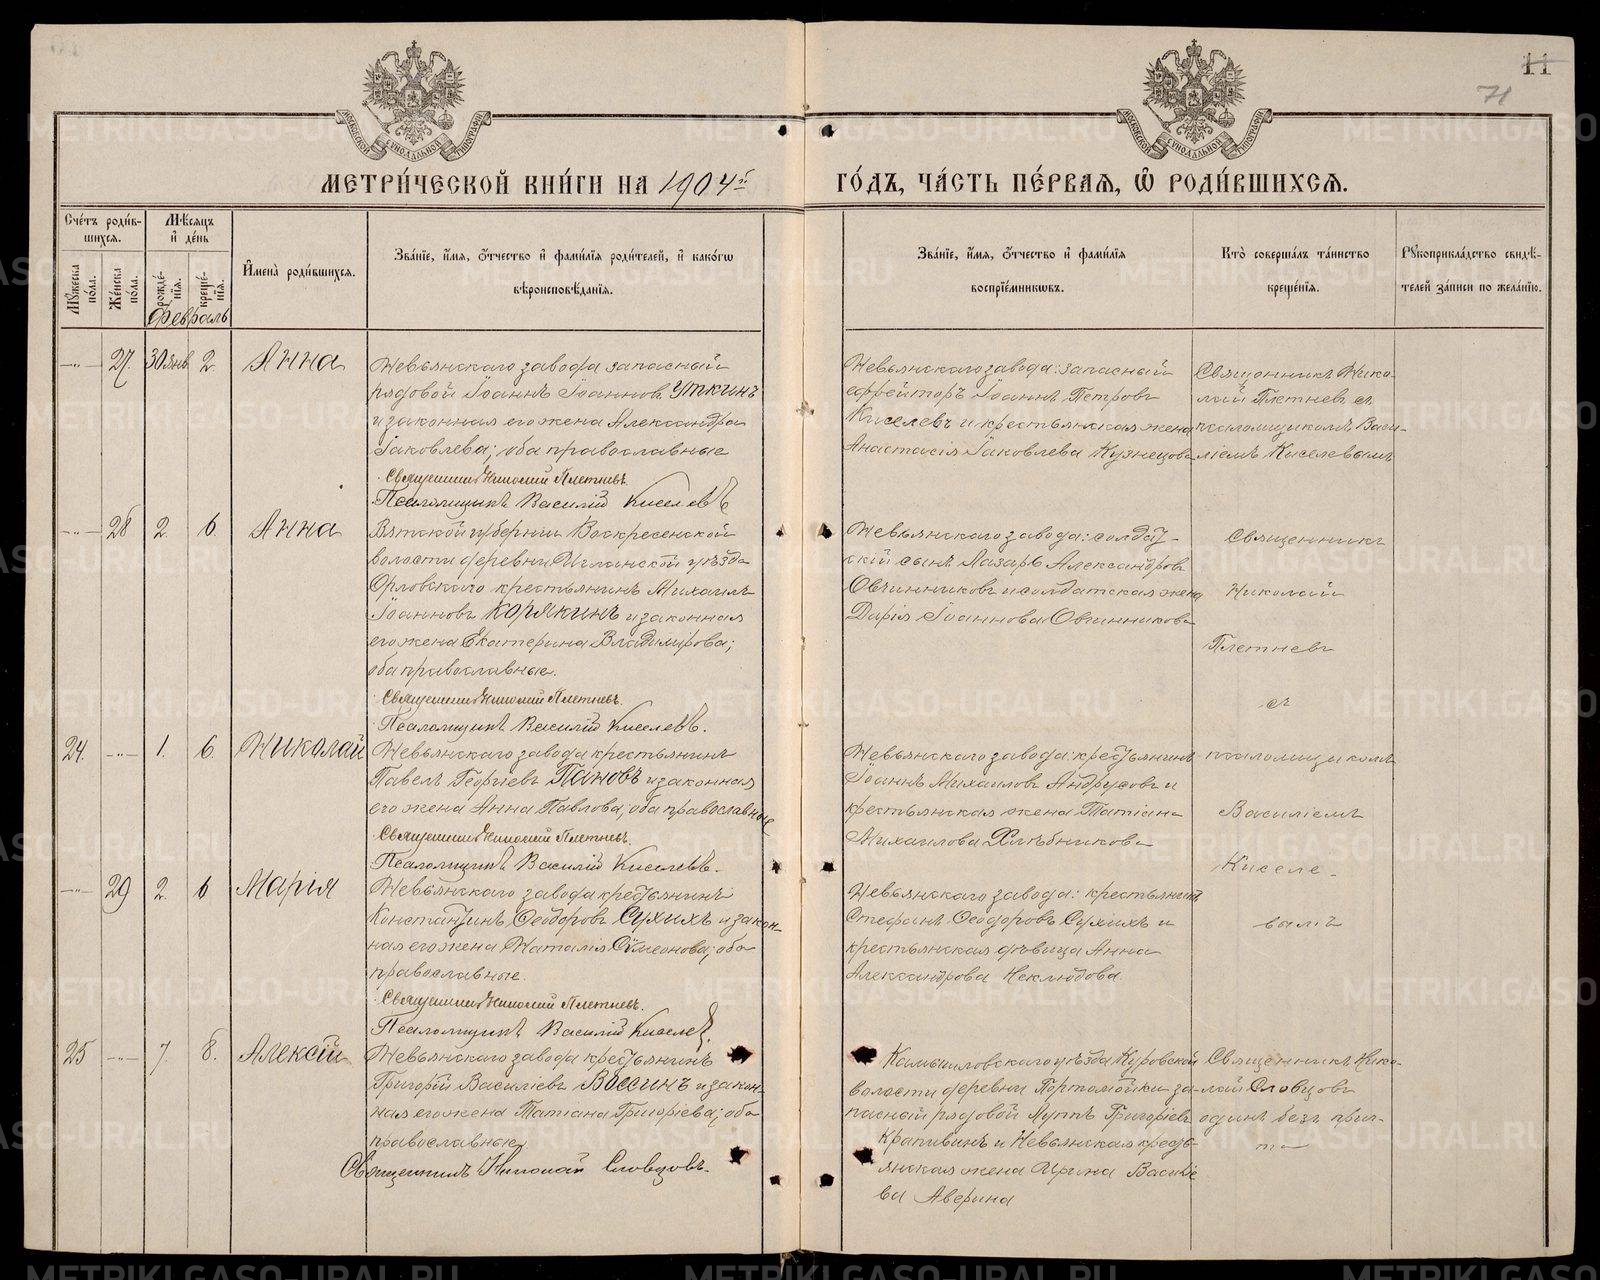 11
71
МОСКОВСКОЙ СѴНОДАЛЬНОЙ ТИПОГРАФІИ
МОСКОВСКОЙ СѴНОДАЛЬНОЙ ТИПОГРАФІИ
МЕТРИ́ЧЕСКОЙ КНИ́ГИ НА 1904й
ГО́ДЪ, ЧА́СТЬ ПЕ́РВАЯ, Ѡ҆ РОДИ́ВШИХСЯ.
Сче́тъ роди́в-
шихся.
Мѣ́сяцъ
и҆ де́нь
Мꙋ́жеска по́ла.
Же́нска по́ла.
рожде́-нїя.
креще́-нїя.
Февраль
И҆мена̀ роди́вшихся.
Зва́нїе, и҆́мя, ѻ҆́тчество и҆ фами́лїя роди́телей, и҆ како́гѡ
вѣроисповѣ́данїя.
Зва́нїе, и҆́мя, ѻ҆́тчество и҆ фами́лїя
воспрїе́мникѡвъ.
Кто̀ соверша́лъ та́инство
креще́нїя.
Рꙋкоприкла́дство свидѣ́-
телей за́писи по жела́нїю.
—"— 27. 30 янв 2. Анна
Невьянскаго завода запасный
рядовой Іоаннъ Іоанновъ Уткинъ
и законная его жена Александра
Іаковлева; оба православные
Священникъ Николай Плетневъ.
Псаломщикъ Василій Киселевъ
Невьянскаго завода: запасный
ефрейторъ Іоаннъ Петровъ
Киселевъ и крестьянская жена
Анастасія Іаковлева Кузнецова
Священникъ Нико-
лай Плетневъ съ
псаломщикомъ Васи-
ліемъ Киселевымъ
—"— 28 2. 6. Анна
Вятской губерніи Воскресенской
волости деревни уѣзда
Орловскаго крестьянинъ Михаилъ
Іоанновъ Корякинъ и законная
его жена Екатерина Владимірова;
оба православные.
Священникъ Николай Плетневъ.
Псаломщикъ Василій Киселевъ.
Невьянскаго завода: солдат-
скій сынъ Лазарь Александровъ
Овчинниковъ и солдатская жена
Дарія Іоаннова Овчинникова
Священникъ
Николай
Плетневъ
съ
24. —"— 1. 6. Николай
Невьянскаго завода крестьянинъ
Павелъ Георгіевъ Пановъ и законная
его жена Анна Павлова; оба православные
Священникъ Николай Плетневъ.
Псаломщикъ Василій Киселевъ.
Невьянскаго завода: крестьянинъ
Іоаннъ Михаиловъ Андрусовъ и
крестьянская жена Татіана
Михаилова Хлѣбникова
псаломщикомъ
Василіемъ
Киселе-
—"— 29 2. 6 Марія
Невьянскаго завода крестьянинъ
Константинъ Ѳеодоровъ Сухихъ и закон-
ная его жена Наталія Сѵмеонова; оба
православные.
Священникъ Николай Плетневъ.
Псаломщикъ Василій Киселевъ.
Невьянскаго завода: крестьянинъ
Стефанъ Ѳеодоровъ Сухихъ и
крестьянская дѣвица Анна
Александрова Неклюдова.
вымъ
25 —"— 7. 8. Алексій
Невьянскаго завода крестьянинъ
Григорій Василіевъ Вассинъ и закон-
ная его жена Татіана Григоріева; оба
православные
Священникъ Николай Словцовъ.
Камышловскаго уѣзда Куровской
волости деревни за-
пасный рядовой Луппъ Григоріевъ
Крапивинъ и Невьянская кресть-
янская жена Ирина Василіе
ва Аверина
Священникъ Нико-
лай Словцовъ
одинъ безъ прич-
та